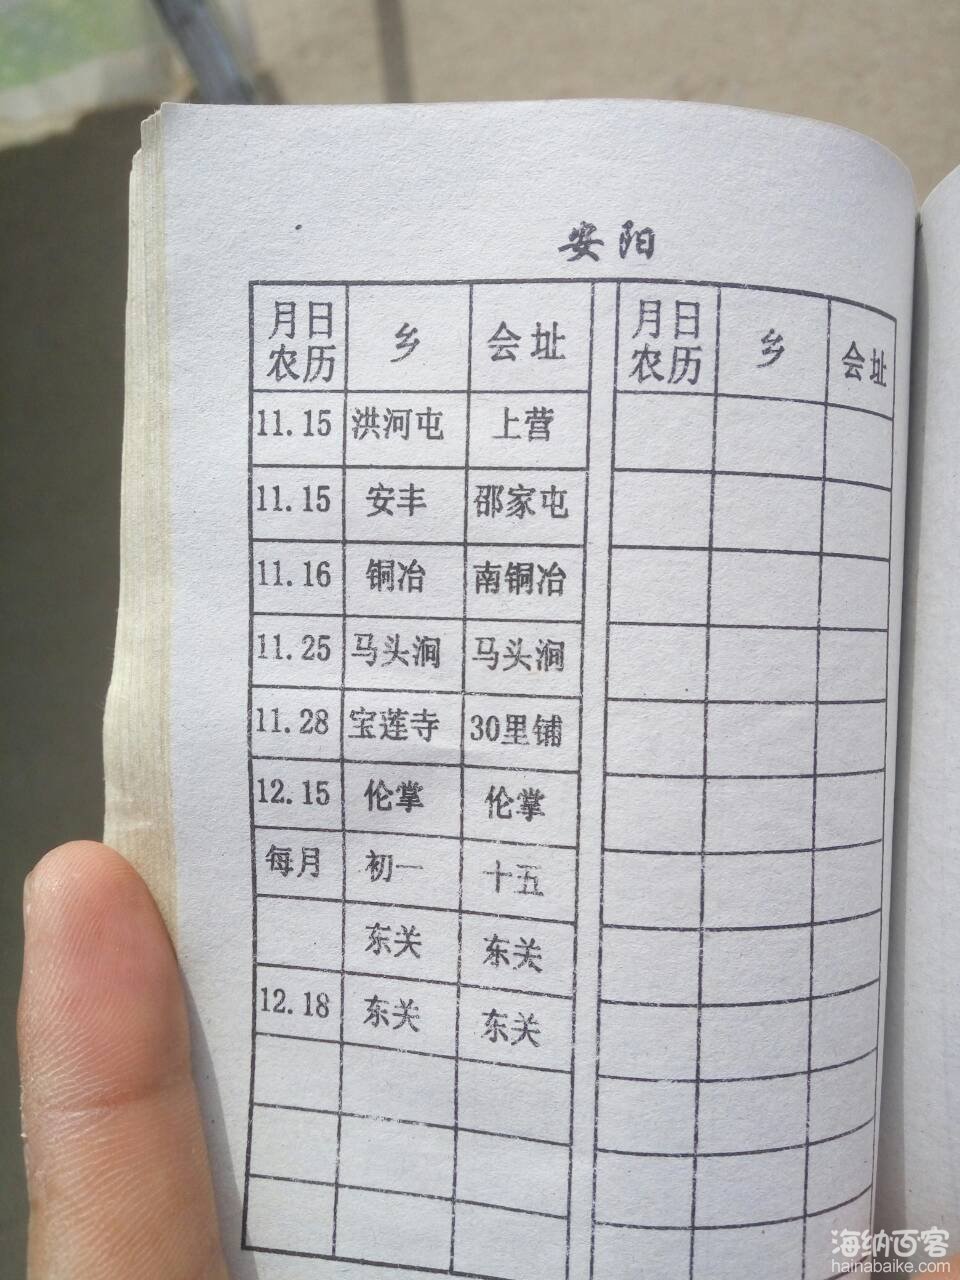 安阳
月日 乡 会址 月日 乡 会址
农历 农历
11.15 洪河屯 上营
11.15 安丰 邵家屯
11.16 铜冶 南铜冶
11.25 马头涧 马头涧
11.28 宝莲寺 30里铺
12.15 伦掌 伦掌
每月 初一 十五
东关 东关
12.18 东关 东关
海纳百客
hainabaike.com